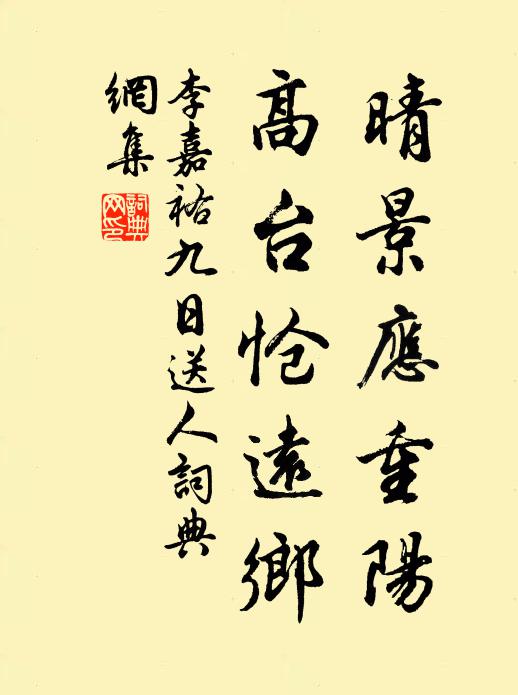 晴景應重陽
高台怆遠鄉
李嘉祐九日送人詞典
網集
詞典
网印